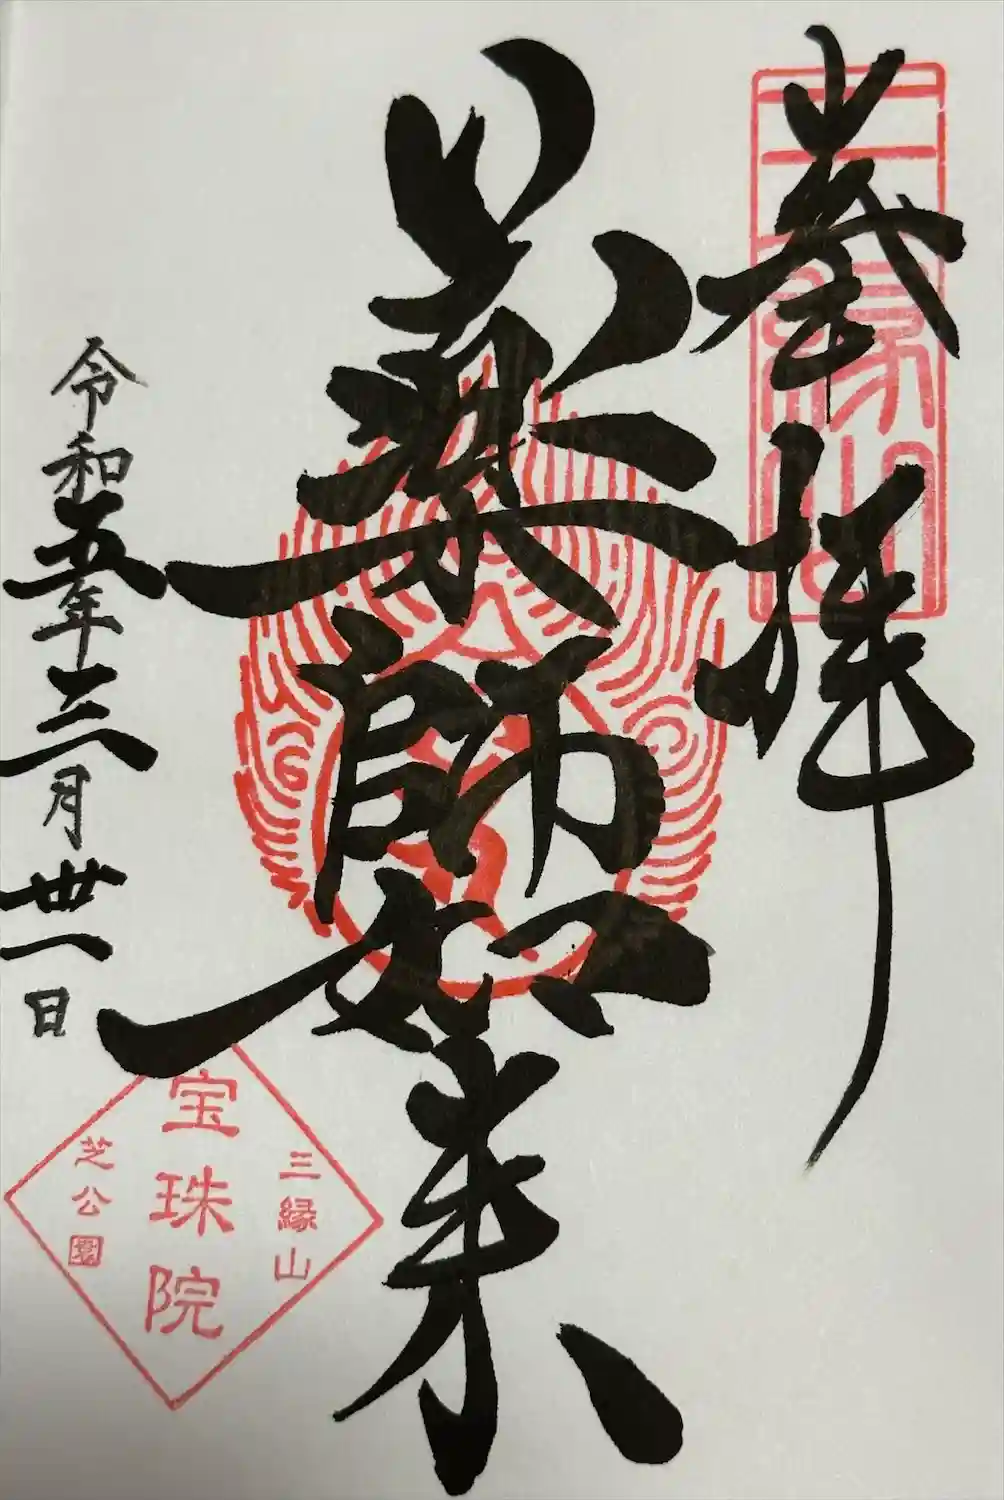 奉拝
三縁山
薬師如来
令和五年三月丗一日
三縁山
宝珠院
芝公園